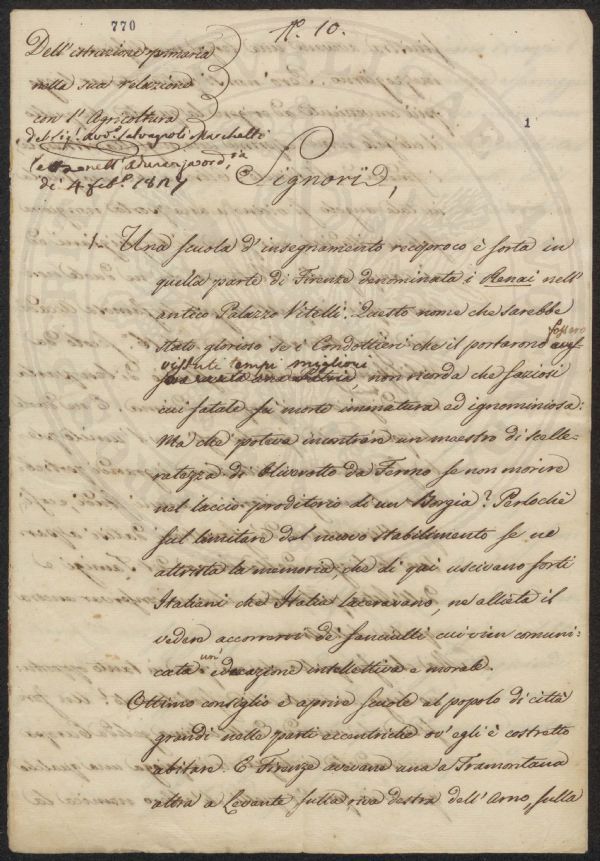 770
N.° 10.
1
Dell'istruzione primaria
nella sua relazione
con l'Agricoltura
del Sig.r Avv.o Salvagnoli Marchetti
letta nell'Adunanza ord.ria
de' 4 feb.o 1827
Signori,
1. Una scuola d'insegnamento reciproco è sorta in
quella parte di Firenze denominata i Renai nell'
antico Palazzo Vitelli. Questo nome che sarebbe
fossero
stato glorioso se i Condottieri che il portarono
vissuti tempi migliori
una Patria, non ricorda che faziosi
cui fatale fu morte immatura ed ignominiosa:
Ma che poteva incontrar un maestro di scelle-
ratezza di Oliverotto da Fermo se non morire
nel laccio proditorio di un Borgia? Perlochè
sul limitare del nuovo stabilimento se ne
attrista la memoria, che di qui uscivano forti
Italiani che Italia laceravano, ne allieta il
vedere accorrervi de' fanciulli cui vien comuni-
un'
cata educazione intellettiva e morale.
Ottimo consiglio è aprire scuole al popolo di città
grandi nelle parti eccentriche ov'egli è costretto
abitare. E Firenze avevane una a Tramontana
altra a Levante sulla riva destra dell'Arno, sulla